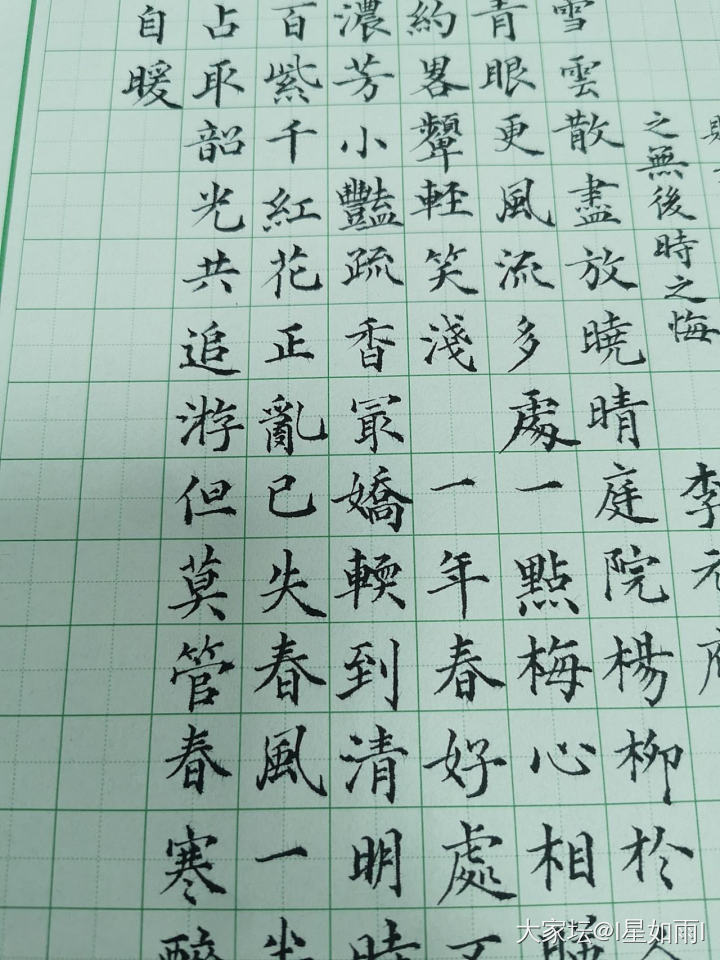 李元
之無後時之悔
雪雲散盡放曉晴庭院楊柳於人
青眼更風流多處一點梅心相映
約畧顰輕笑淺 一年春好處不
濃芳小豔疏香冣嬌輭到清明時
百紫千紅花正亂已失春風一半
占取韶光共追游但莫管春寒醉
自暖
大家坛@l星如雨l